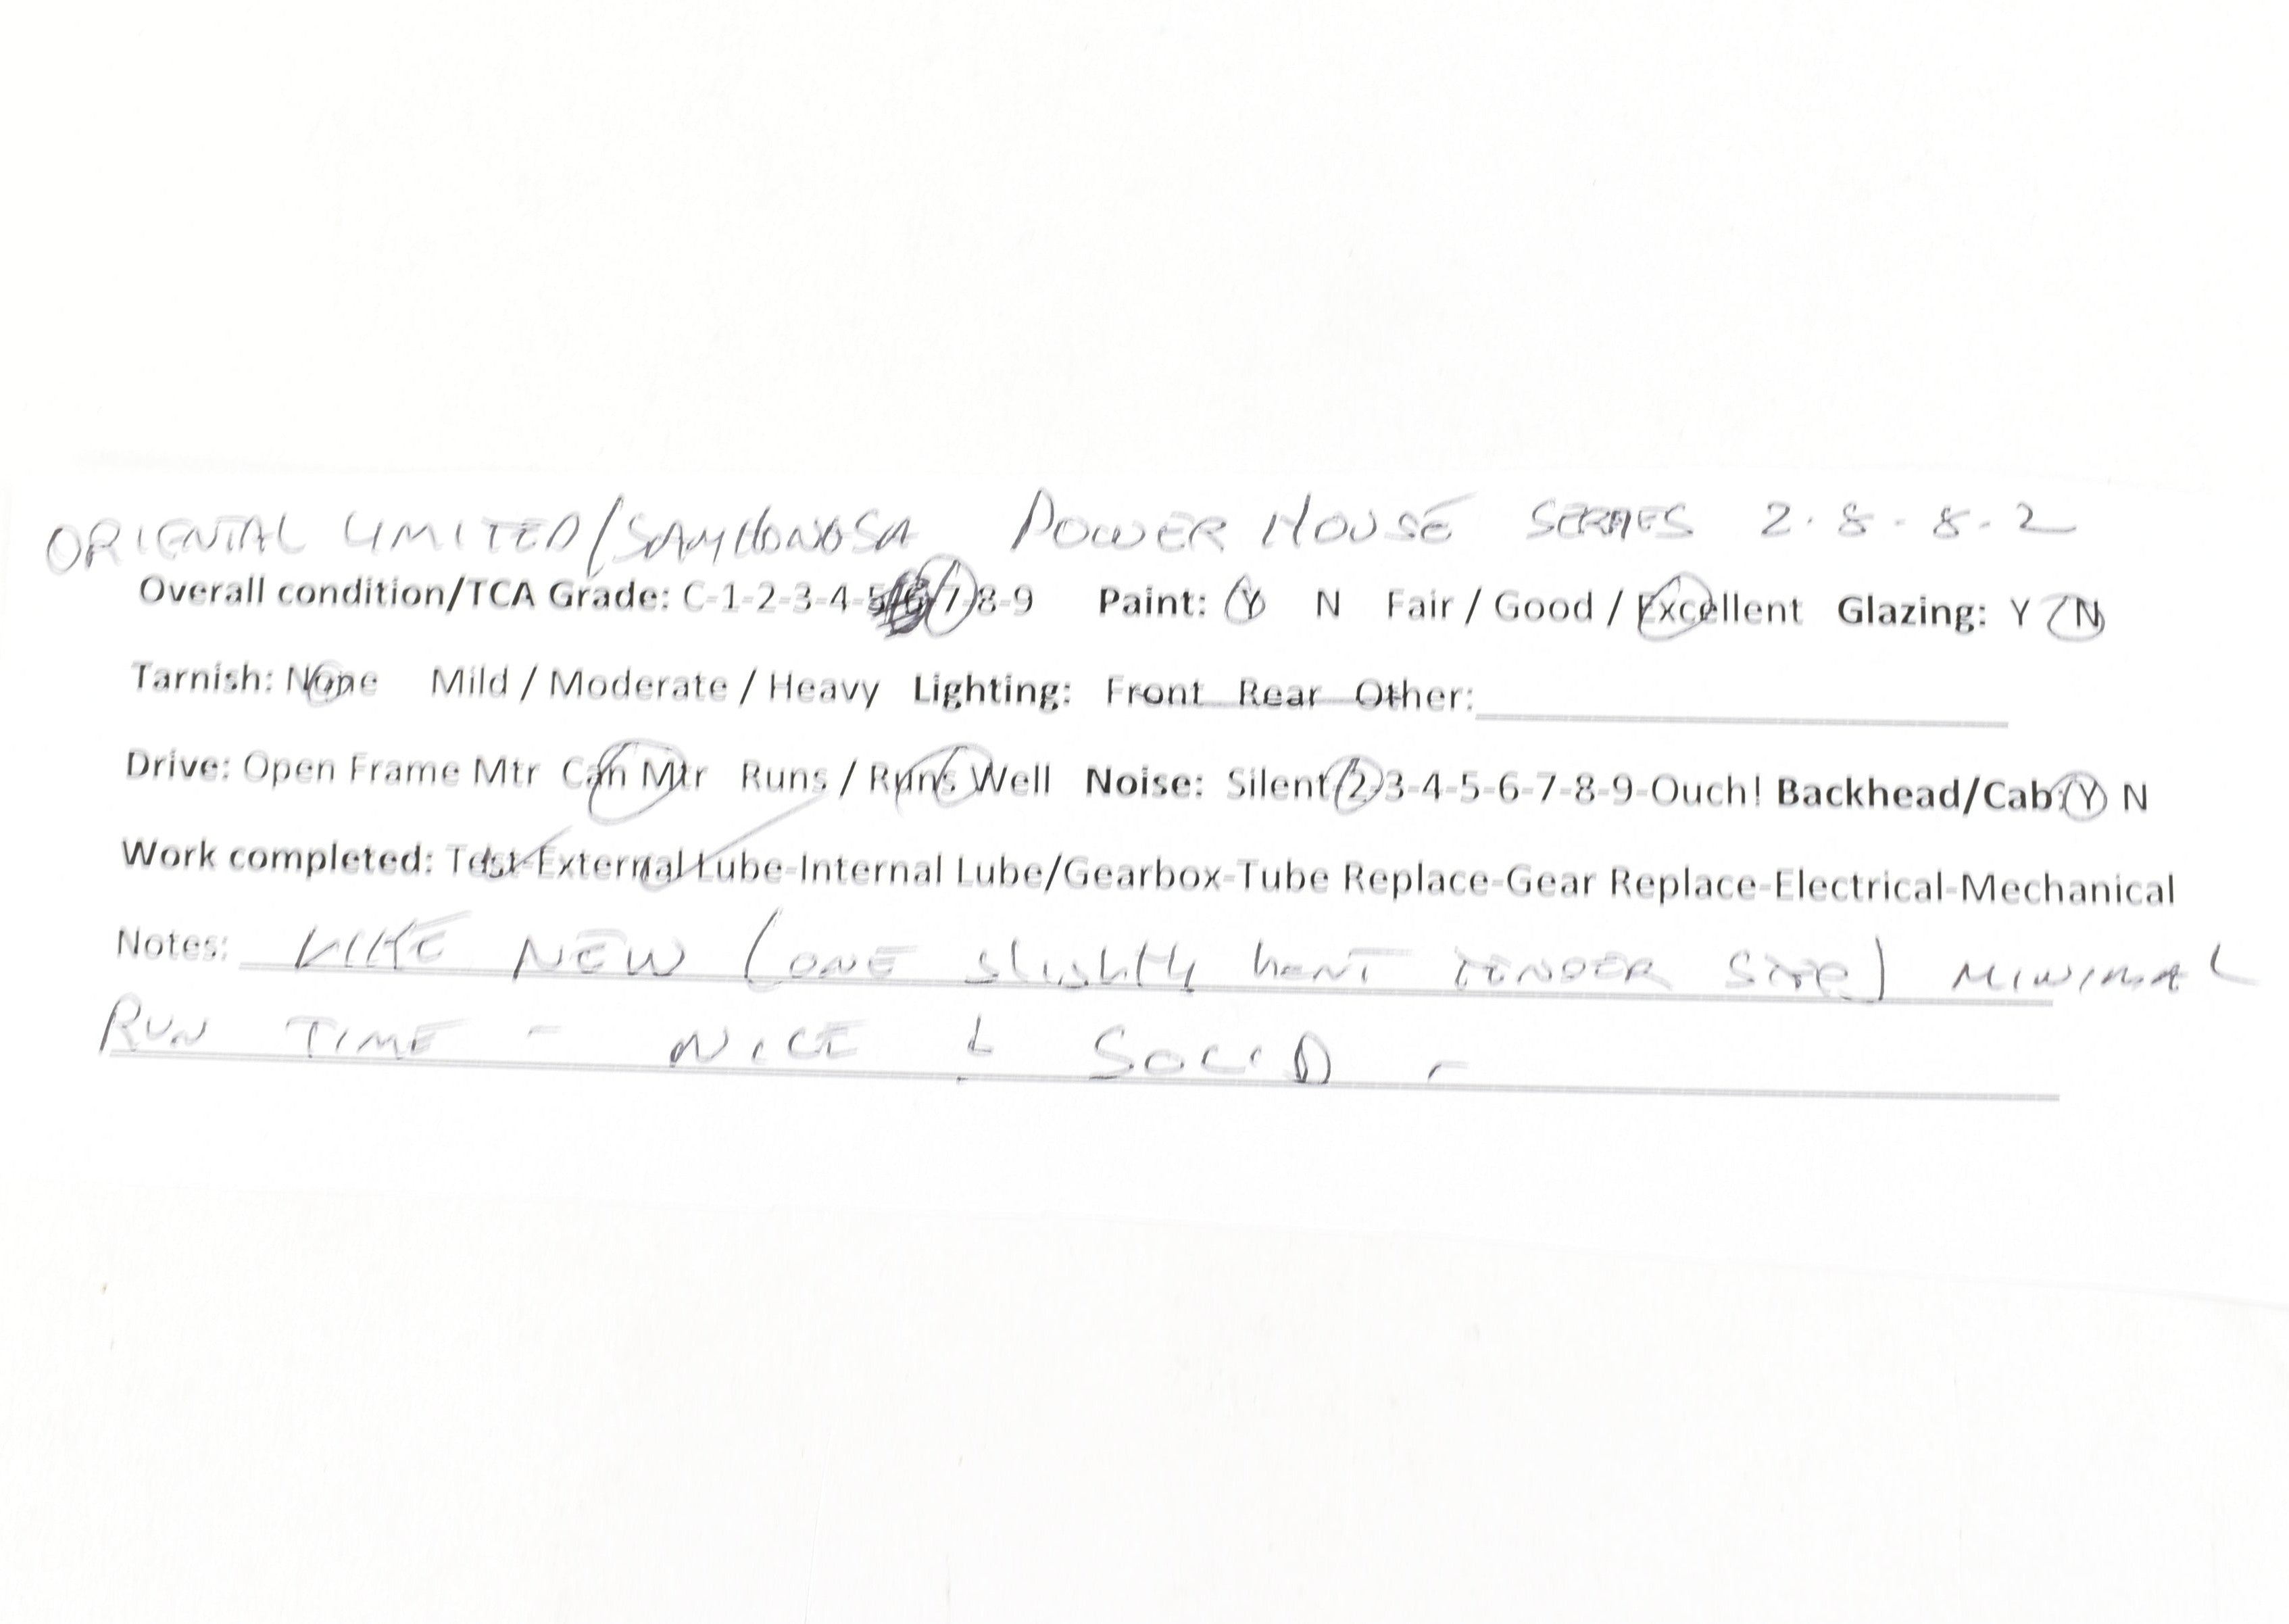 ORIENTAL LIMITED/SAMHONGSA POWER HOUSE SERIES 2-8-8-2
Overall condition/TCA Grade: C-1-2-3-4-5-6-7-8-9 Paint: Y N Fair / Good / Excellent Glazing: Y N
Tarnish: None Mild / Moderate / Heavy Lighting: Front Rear Other:
Drive: Open Frame Mtr Can Mtr Runs / Runs Well Noise: Silent-2-3-4-5-6-7-8-9-Ouch! Backhead/Cab: Y N
Work completed: Test-External Lube-Internal Lube/Gearbox-Tube Replace-Gear Replace-Electrical-Mechanical
Notes: LIKE NEW (ONE slightly bent TENDER STEP) MINIMAL
RUN TIME - NICE & SOLID -